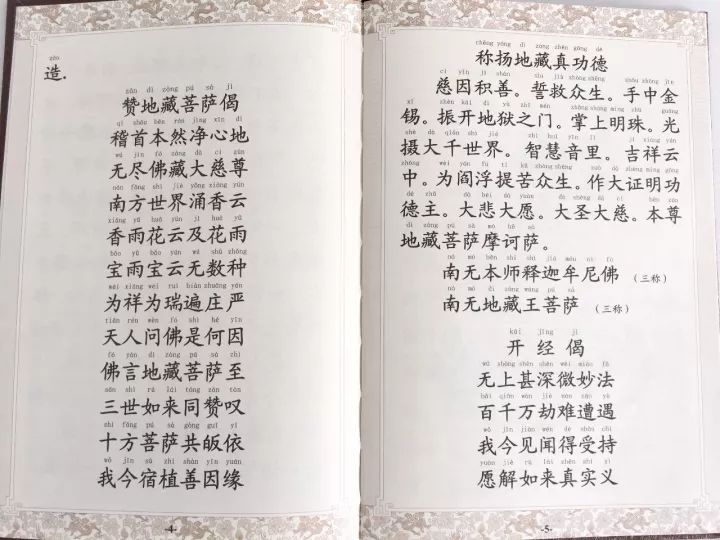 zào
造.
zàn dì zàng pú sà jì
赞地藏菩萨偈
qǐ shǒu běn rán jìng xīn dì
稽首本然净心地
wú jìn fó zàng dà cí zūn
无尽佛藏大慈尊
nán fāng shì jiè yǒng xiāng yún
南方世界涌香云
xiāng yǔ huā yún jí huā yǔ
香雨花云及花雨
bǎo yǔ bǎo yún wú shù zhǒng
宝雨宝云无数种
wéi xiáng wéi ruì biàn zhuāng yán
为祥为瑞遍庄严
tiān rén wèn fó shì hé yīn
天人问佛是何因
fó yán dì zàng pú sà zhì
佛言地藏菩萨至
sān shì rú lái tóng zàn tàn
三世如来同赞叹
shí fāng pú sà gòng guī yī
十方菩萨共皈依
wǒ jīn sù zhí shàn yīn yuán
我今宿植善因缘
-4-
chēng yáng dì zàng zhēn gōng dé
称扬地藏真功德
cí yīn jī shàn shì jiù zhòng shēng shǒu zhōng jīn
慈因积善。誓救众生。手中金
xī zhèn kāi dì yù zhī mén zhǎng shàng míng zhū guāng
锡。振开地狱之门。掌上明珠。光
shè dà qiān shì jiè zhì huì yīn lǐ jí xiáng yún
摄大千世界。智慧音里。吉祥云
zhōng wèi yán fú tí kǔ zhòng shēng zuò dà zhèng míng gōng
中。为阎浮提苦众生。作大证明功
dé zhǔ dà bēi dà yuàn dà shèng dà cí běn zūn
德主。大悲大愿。大圣大慈。本尊
dì zàng pú sà mó hē sà
地藏菩萨摩诃萨。
nā mó běn shī shì jiā móu ní fó
南无本师释迦牟尼佛（三称）
nā mó dì zàng wáng pú sà
南无地藏王菩萨（三称）
kāi jīng jì
开经偈
wú shàng shèn shēn wēi miào fǎ
无上甚深微妙法
bǎi qiān wàn jié nán zāo yù
百千万劫难遭遇
wǒ jīn jiàn wén dé shòu chí
我今见闻得受持
yuàn jiě rú lái zhēn shí yì
愿解如来真实义
-5-